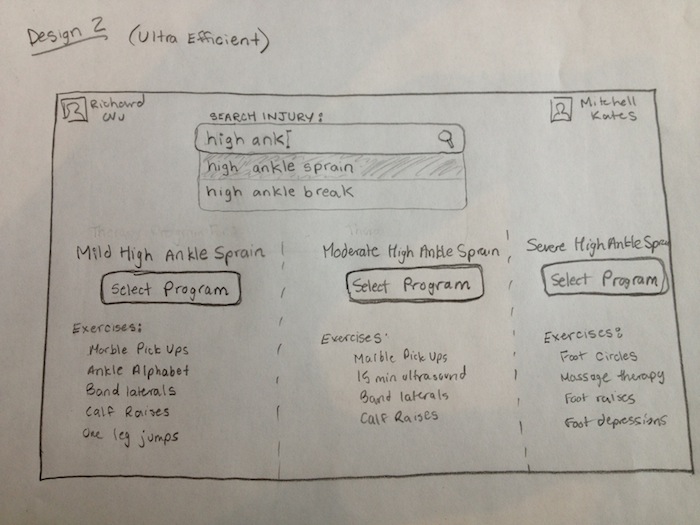 Design 2 (Ultra Efficient)
Richard
Wu
Mitchell
Kates
SEARCH INJURY:
high ank
high ankle sprain
high ankle break
Mild High Ankle Sprain
Select Program
Exercises:
Marble Pick Ups
Ankle Alphabet
Band laterals
Calf Raises
One leg jumps
Moderate High Ankle Sprain
Select Program
Exercises:
Marble Pick Ups
15 min ultrasound
Band laterals
Calf Raises
Severe High Ankle Sprain
Select Program
Exercises:
Foot Circles
Massage therapy
Foot raises
Foot depressions